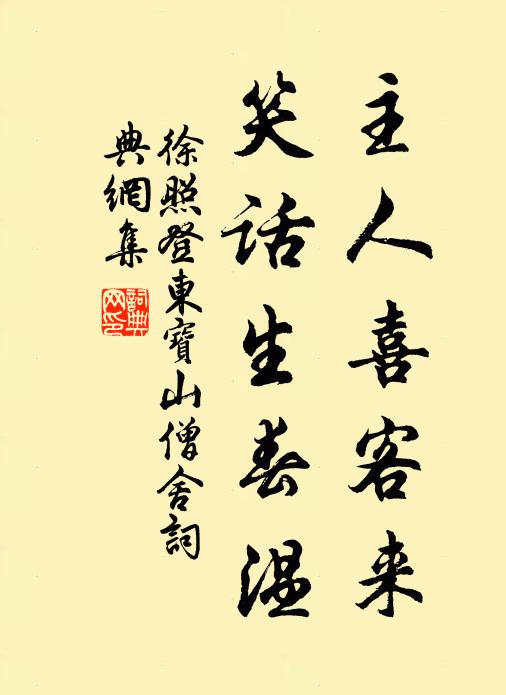 主人喜客来
笑话生春温
徐照登東寶山僧舍詞
典網集
詞典
网印